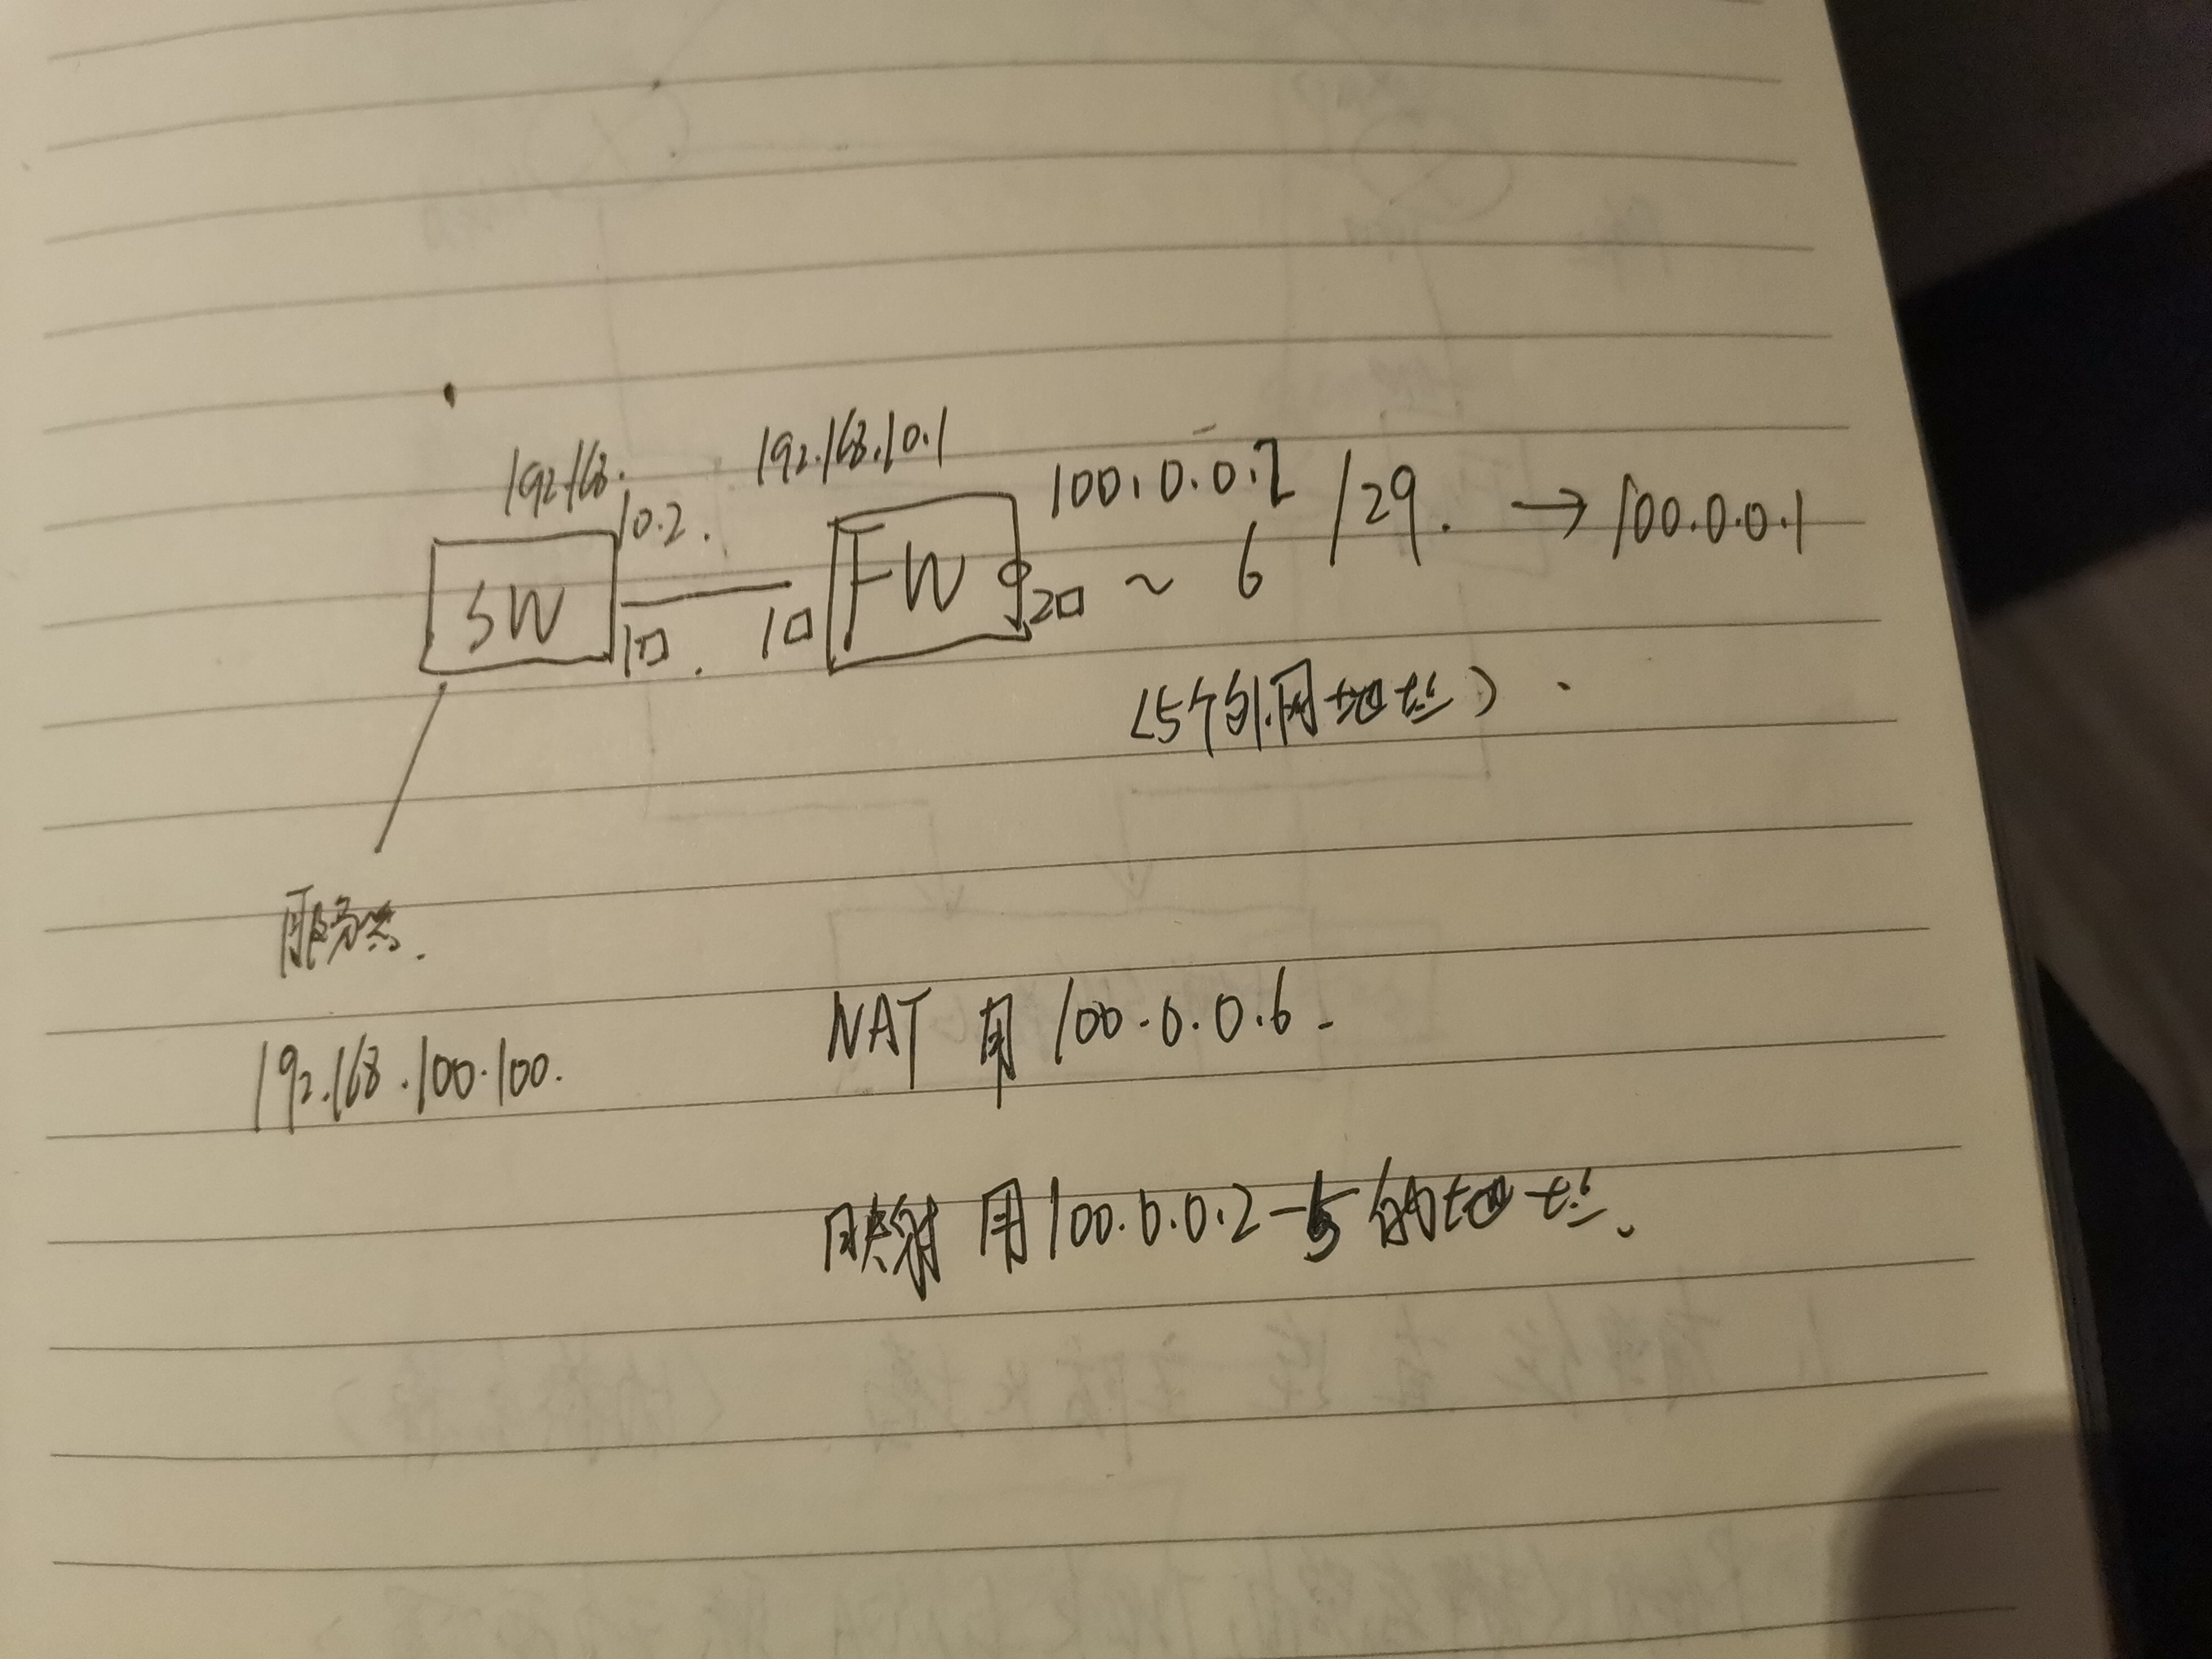 192.168.
10.2.
192.168.10.1
100.0.0.2
~ 6
/29. → 100.0.0.1
SW
1口.
1口
FW
2口
(5个外网地址).
服务器.
192.168.100.100.
NAT 用 100.0.0.6.
映射 用100.0.0.2-5的地址.